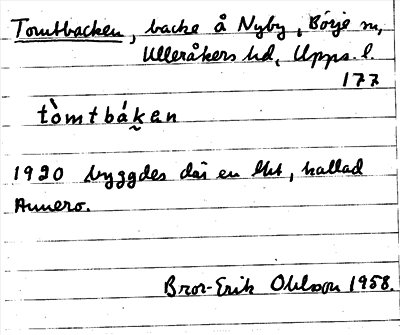 Tomtbacken, backe å Nyby, Börje sn,
Ulleråkers hd, Upps. l.
177
tòmtbákan
1920 byggdes där en lht, kallad
Annero.
Bror-Erik Ohlsson 1958.